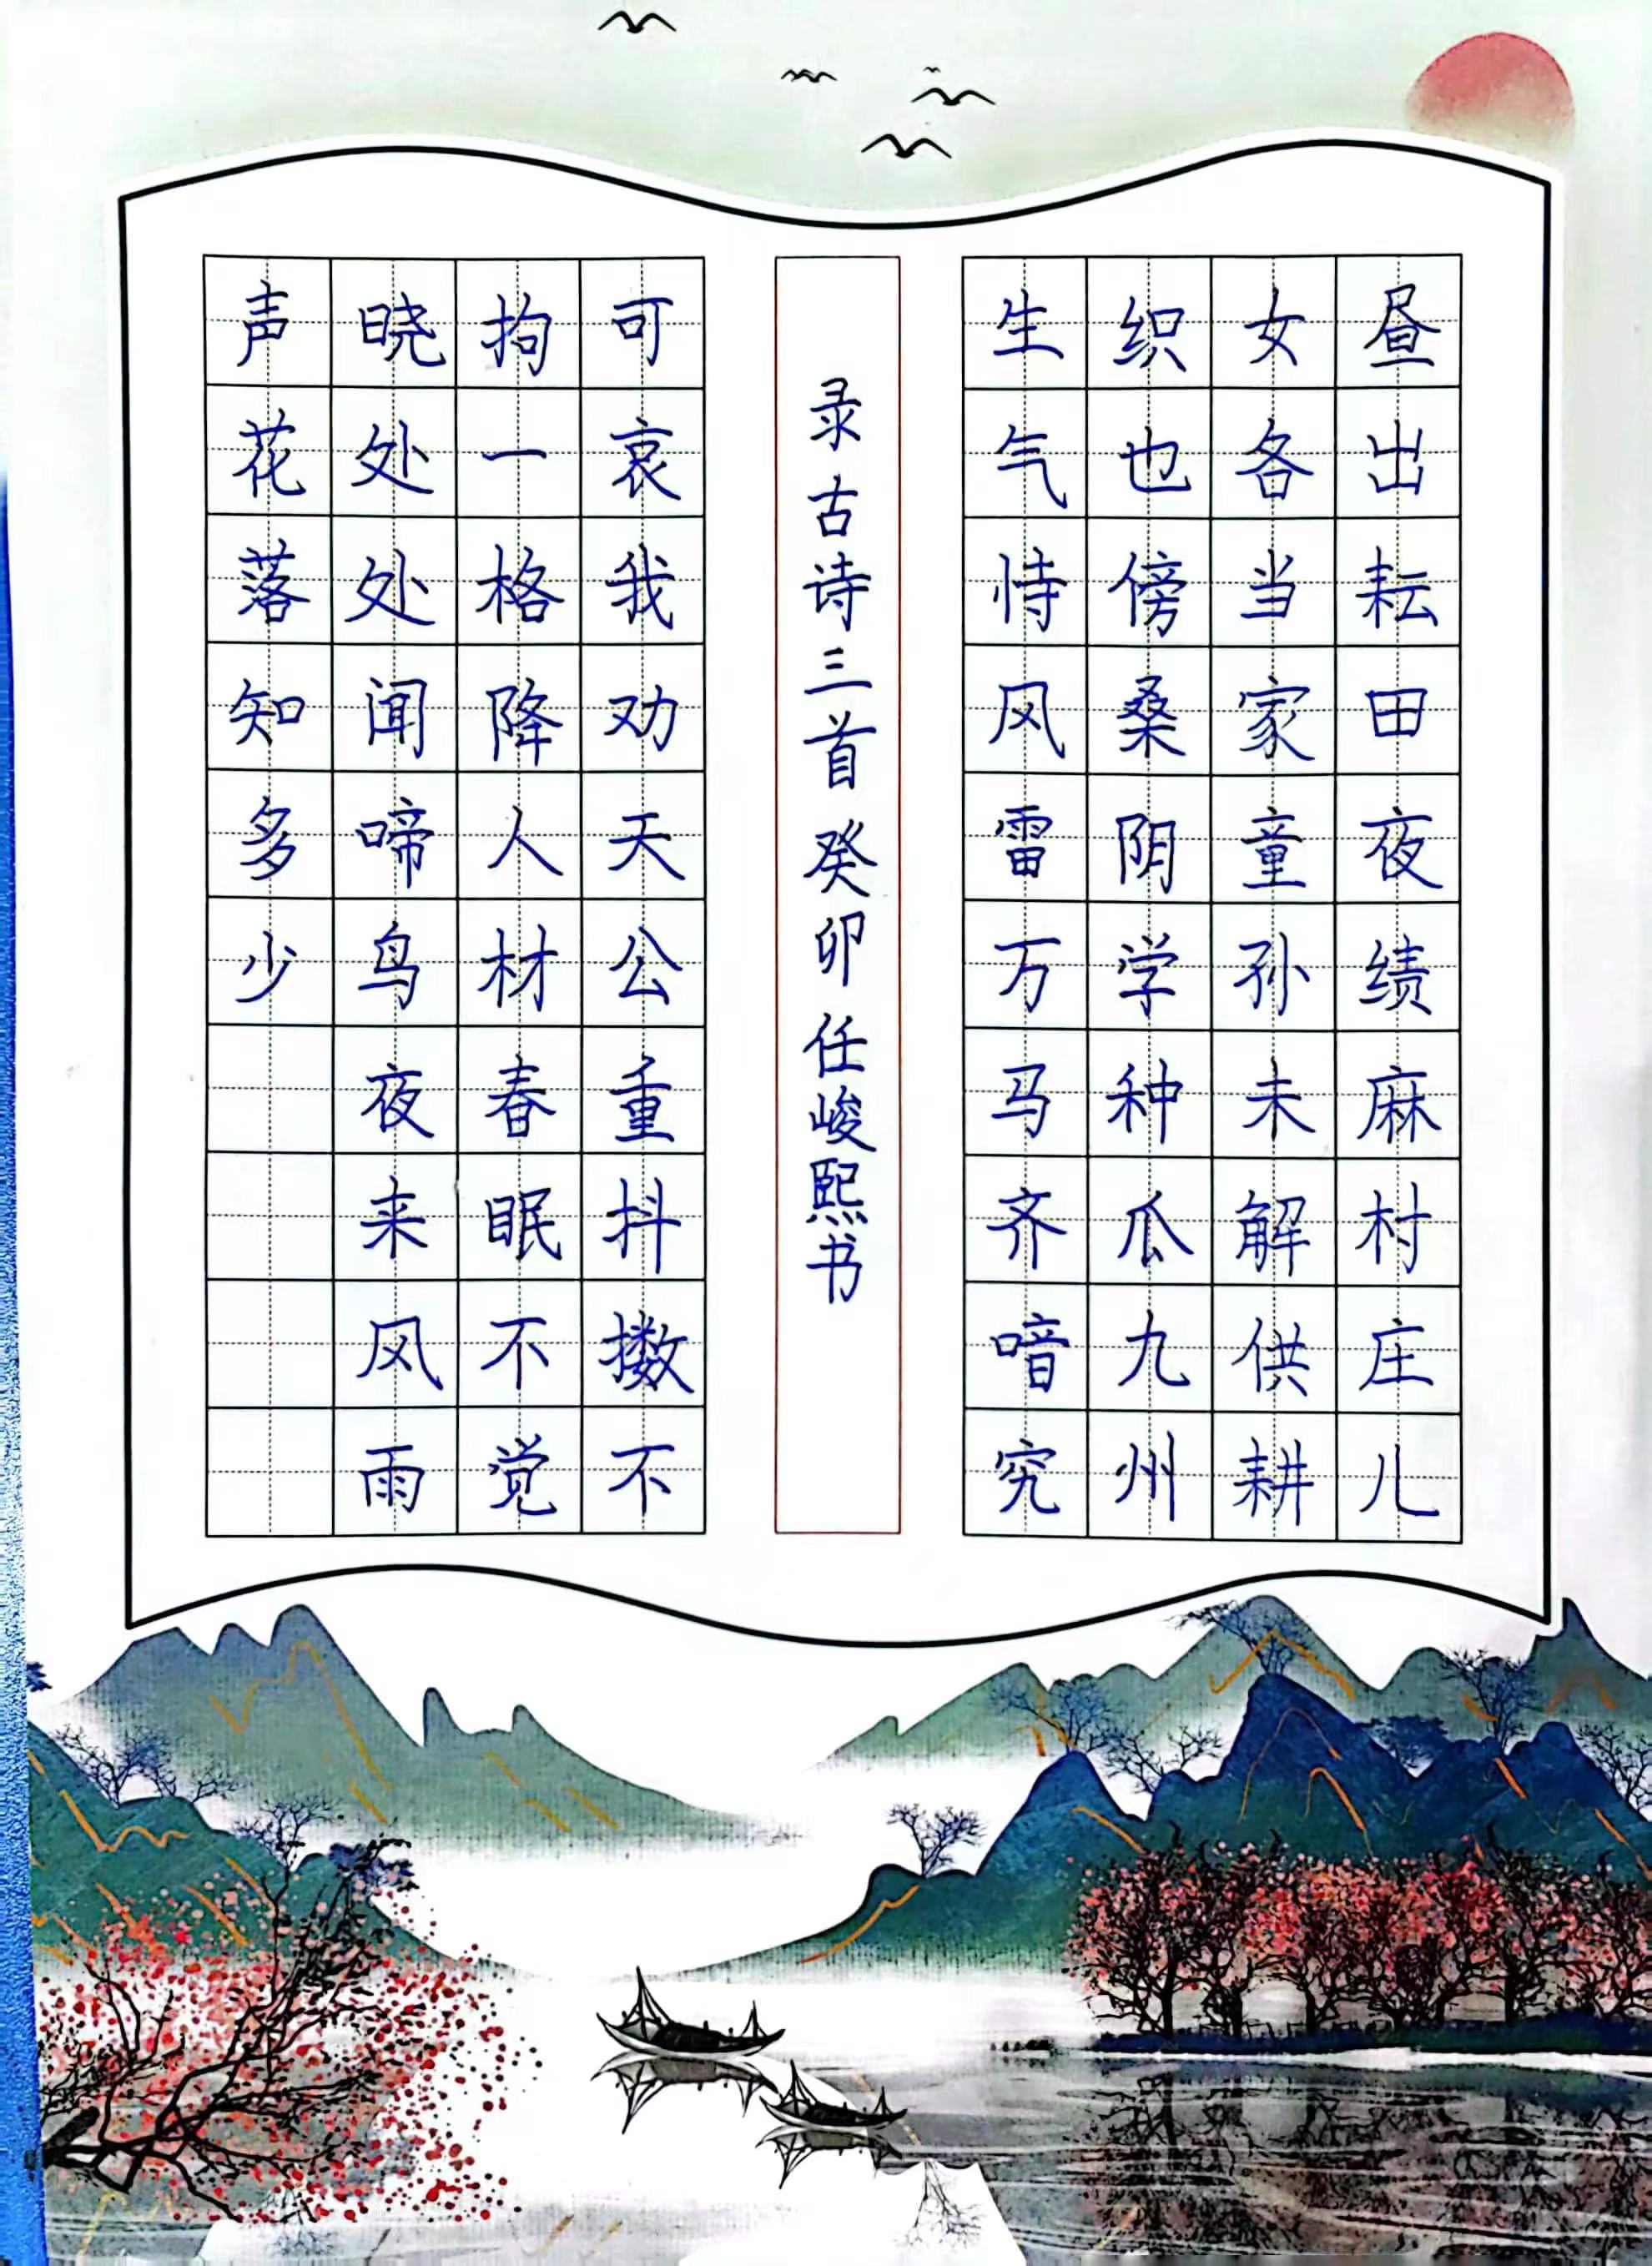 昼出耘田夜绩麻村庄儿
女各当家童孙未解供耕
织也傍桑阴学种瓜九州
生气恃风雷万马齐喑究
可哀我劝天公重抖擞不
拘一格降人材春眠不觉
晓处处闻啼鸟夜来风雨
声花落知多少
录古诗三首癸卯任峻熙书